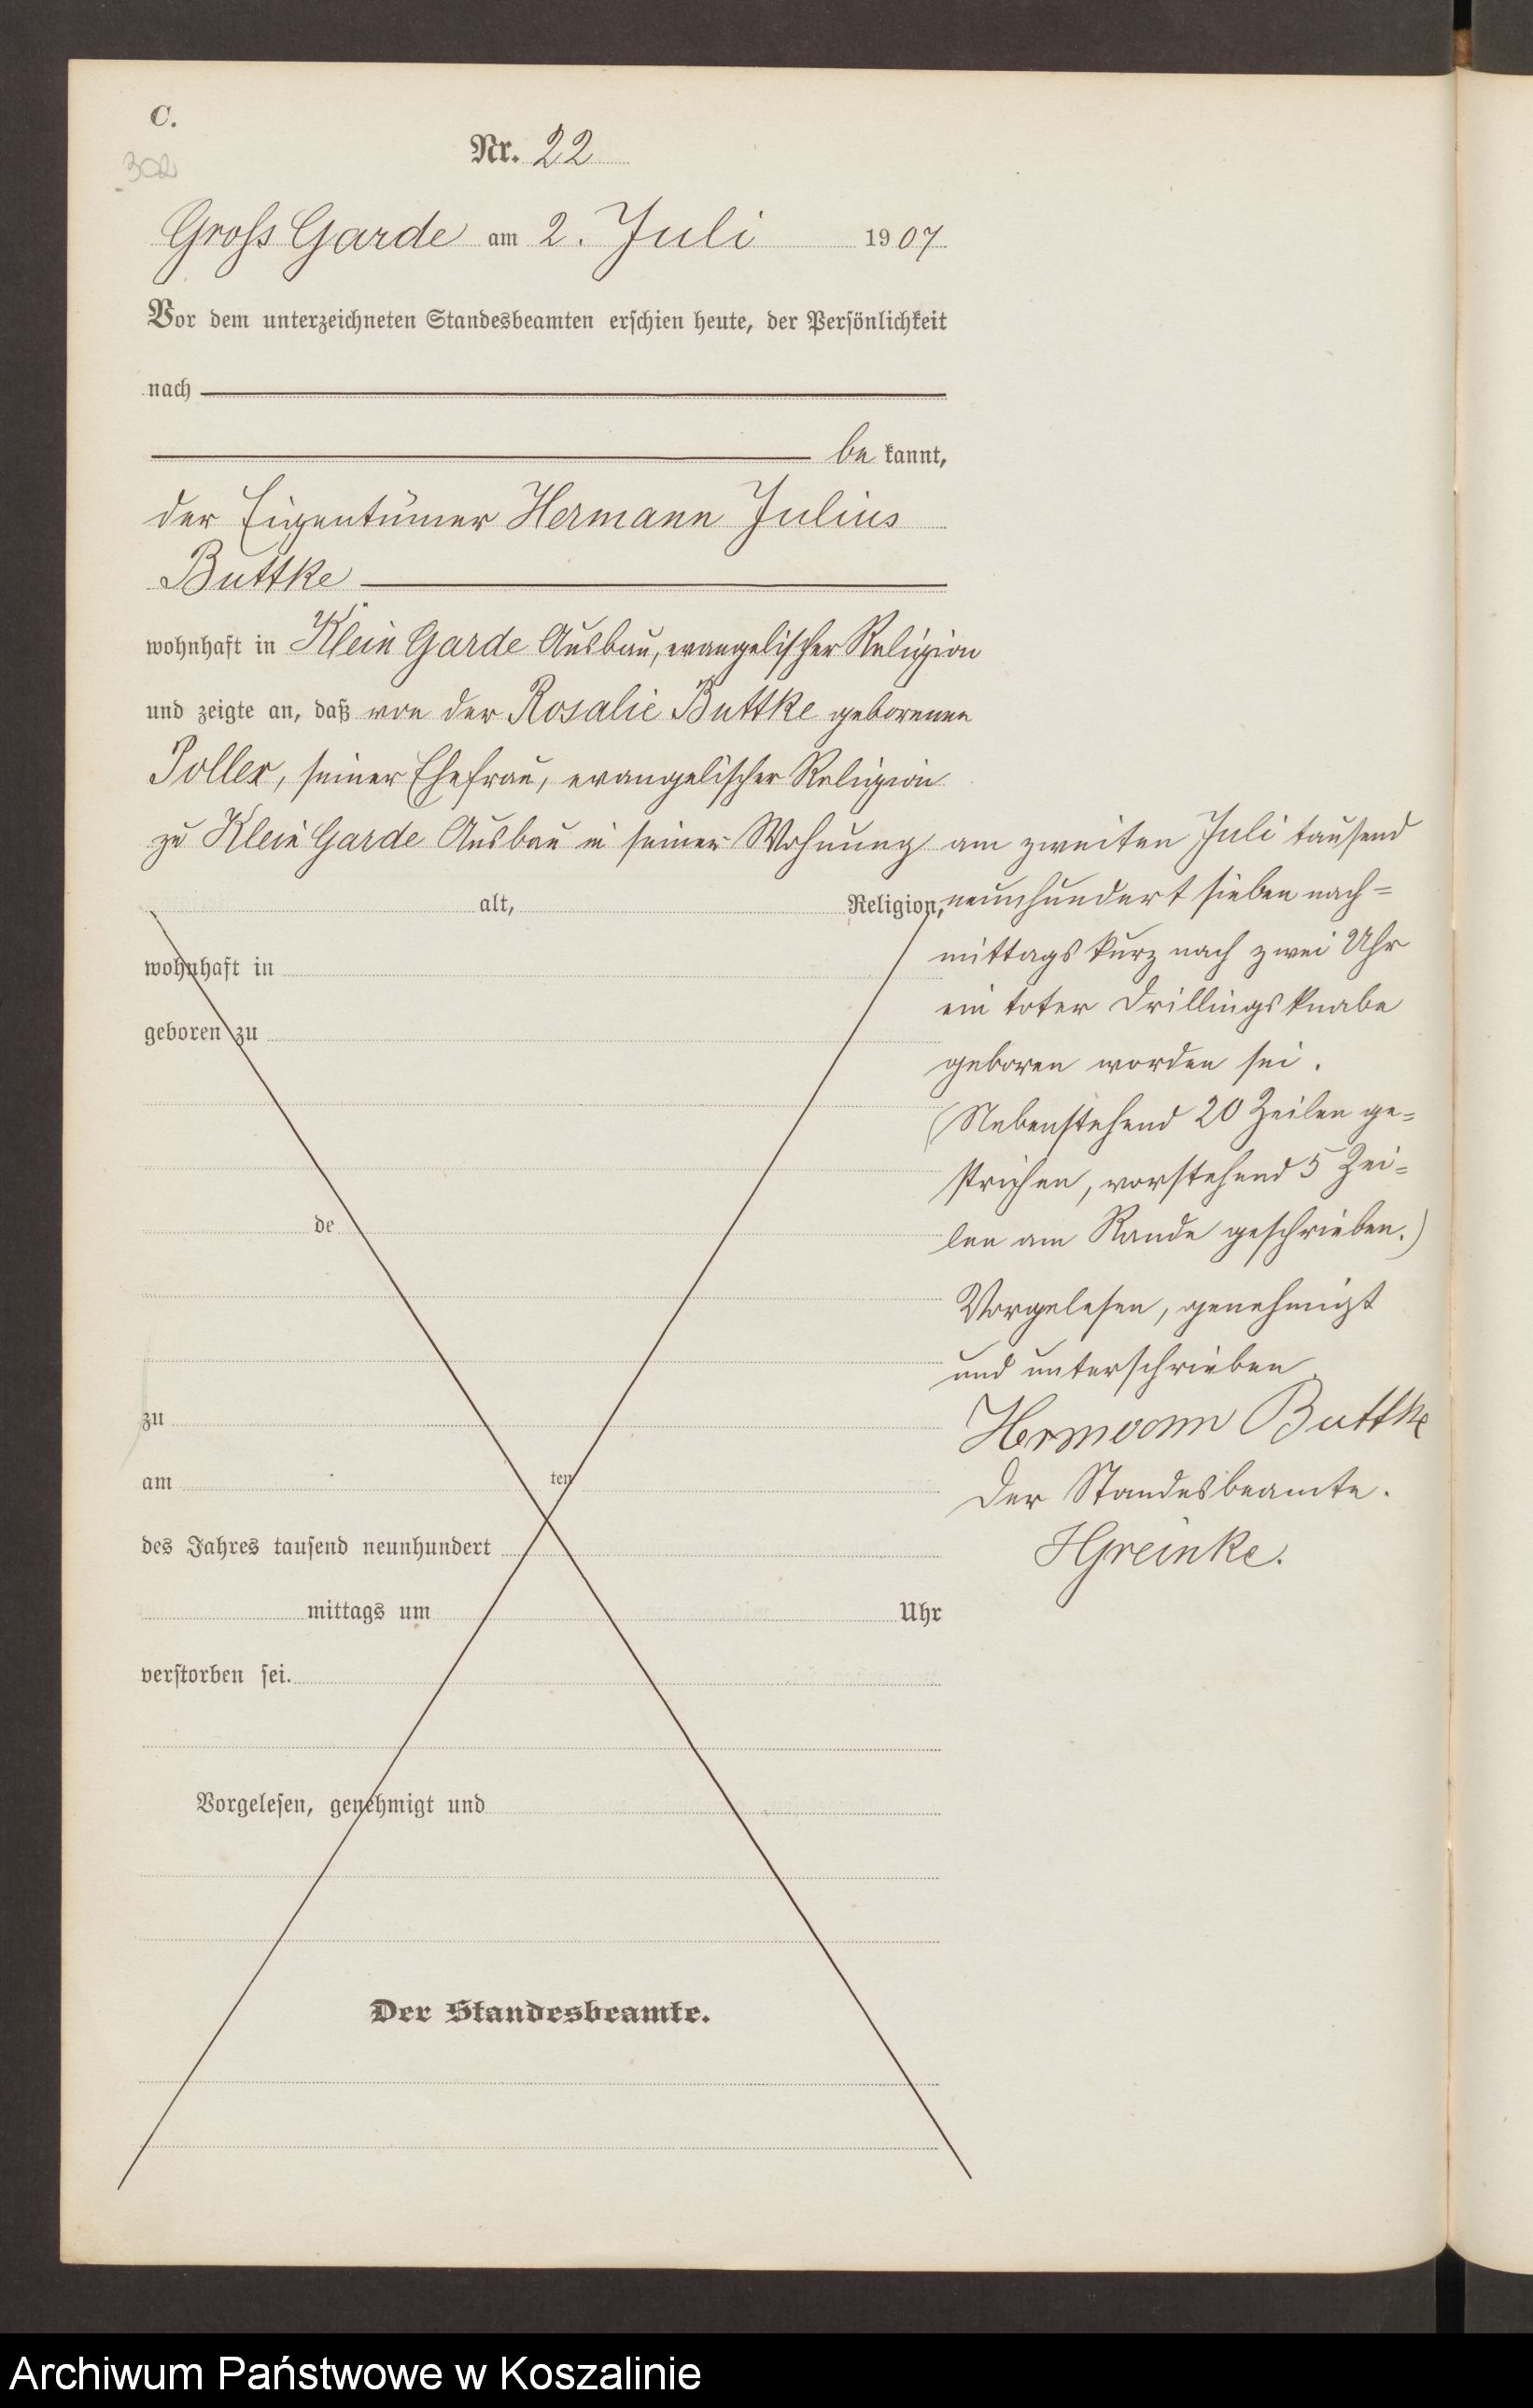 C.
302
Nr. 22
Gross Garde am 2. Juli 1907
Vor dem unterzeichneten Standesbeamten erschien heute, der Persönlichkeit
nach
be kannt,
der Eigentümer Hermann Julius
Buttke
wohnhaft in Klein Garde Ausbau, evangelischer Religion
und zeigte an, daß von der Rosalie Buttke geborenen
Poller, seiner Ehefrau, evangelischer Religion
zu Klein Garde Ausbau in seiner Wohnung am zweiten Juli tausend
alt, Religion, neunhundert sieben nach=
wohnhaft in
mittags kurz nach zwei Uhr
ein toter Drillingsknabe
geboren zu
geboren worden sei.
(Nebenstehend 20 Zeilen ge=
strichen, vorstehend 5 Zei=
de
len am Rande geschrieben.)
Vorgelesen, genehmigt
und unterschrieben
zu
Hermann Buttke
am ten
Der Standesbeamte.
des Jahres tausend neunhundert
HGreinke.
mittags um Uhr
verstorben sei.
Vorgelesen, genehmigt und
Der Standesbeamte.
Archiwum Państwowe w Koszalinie